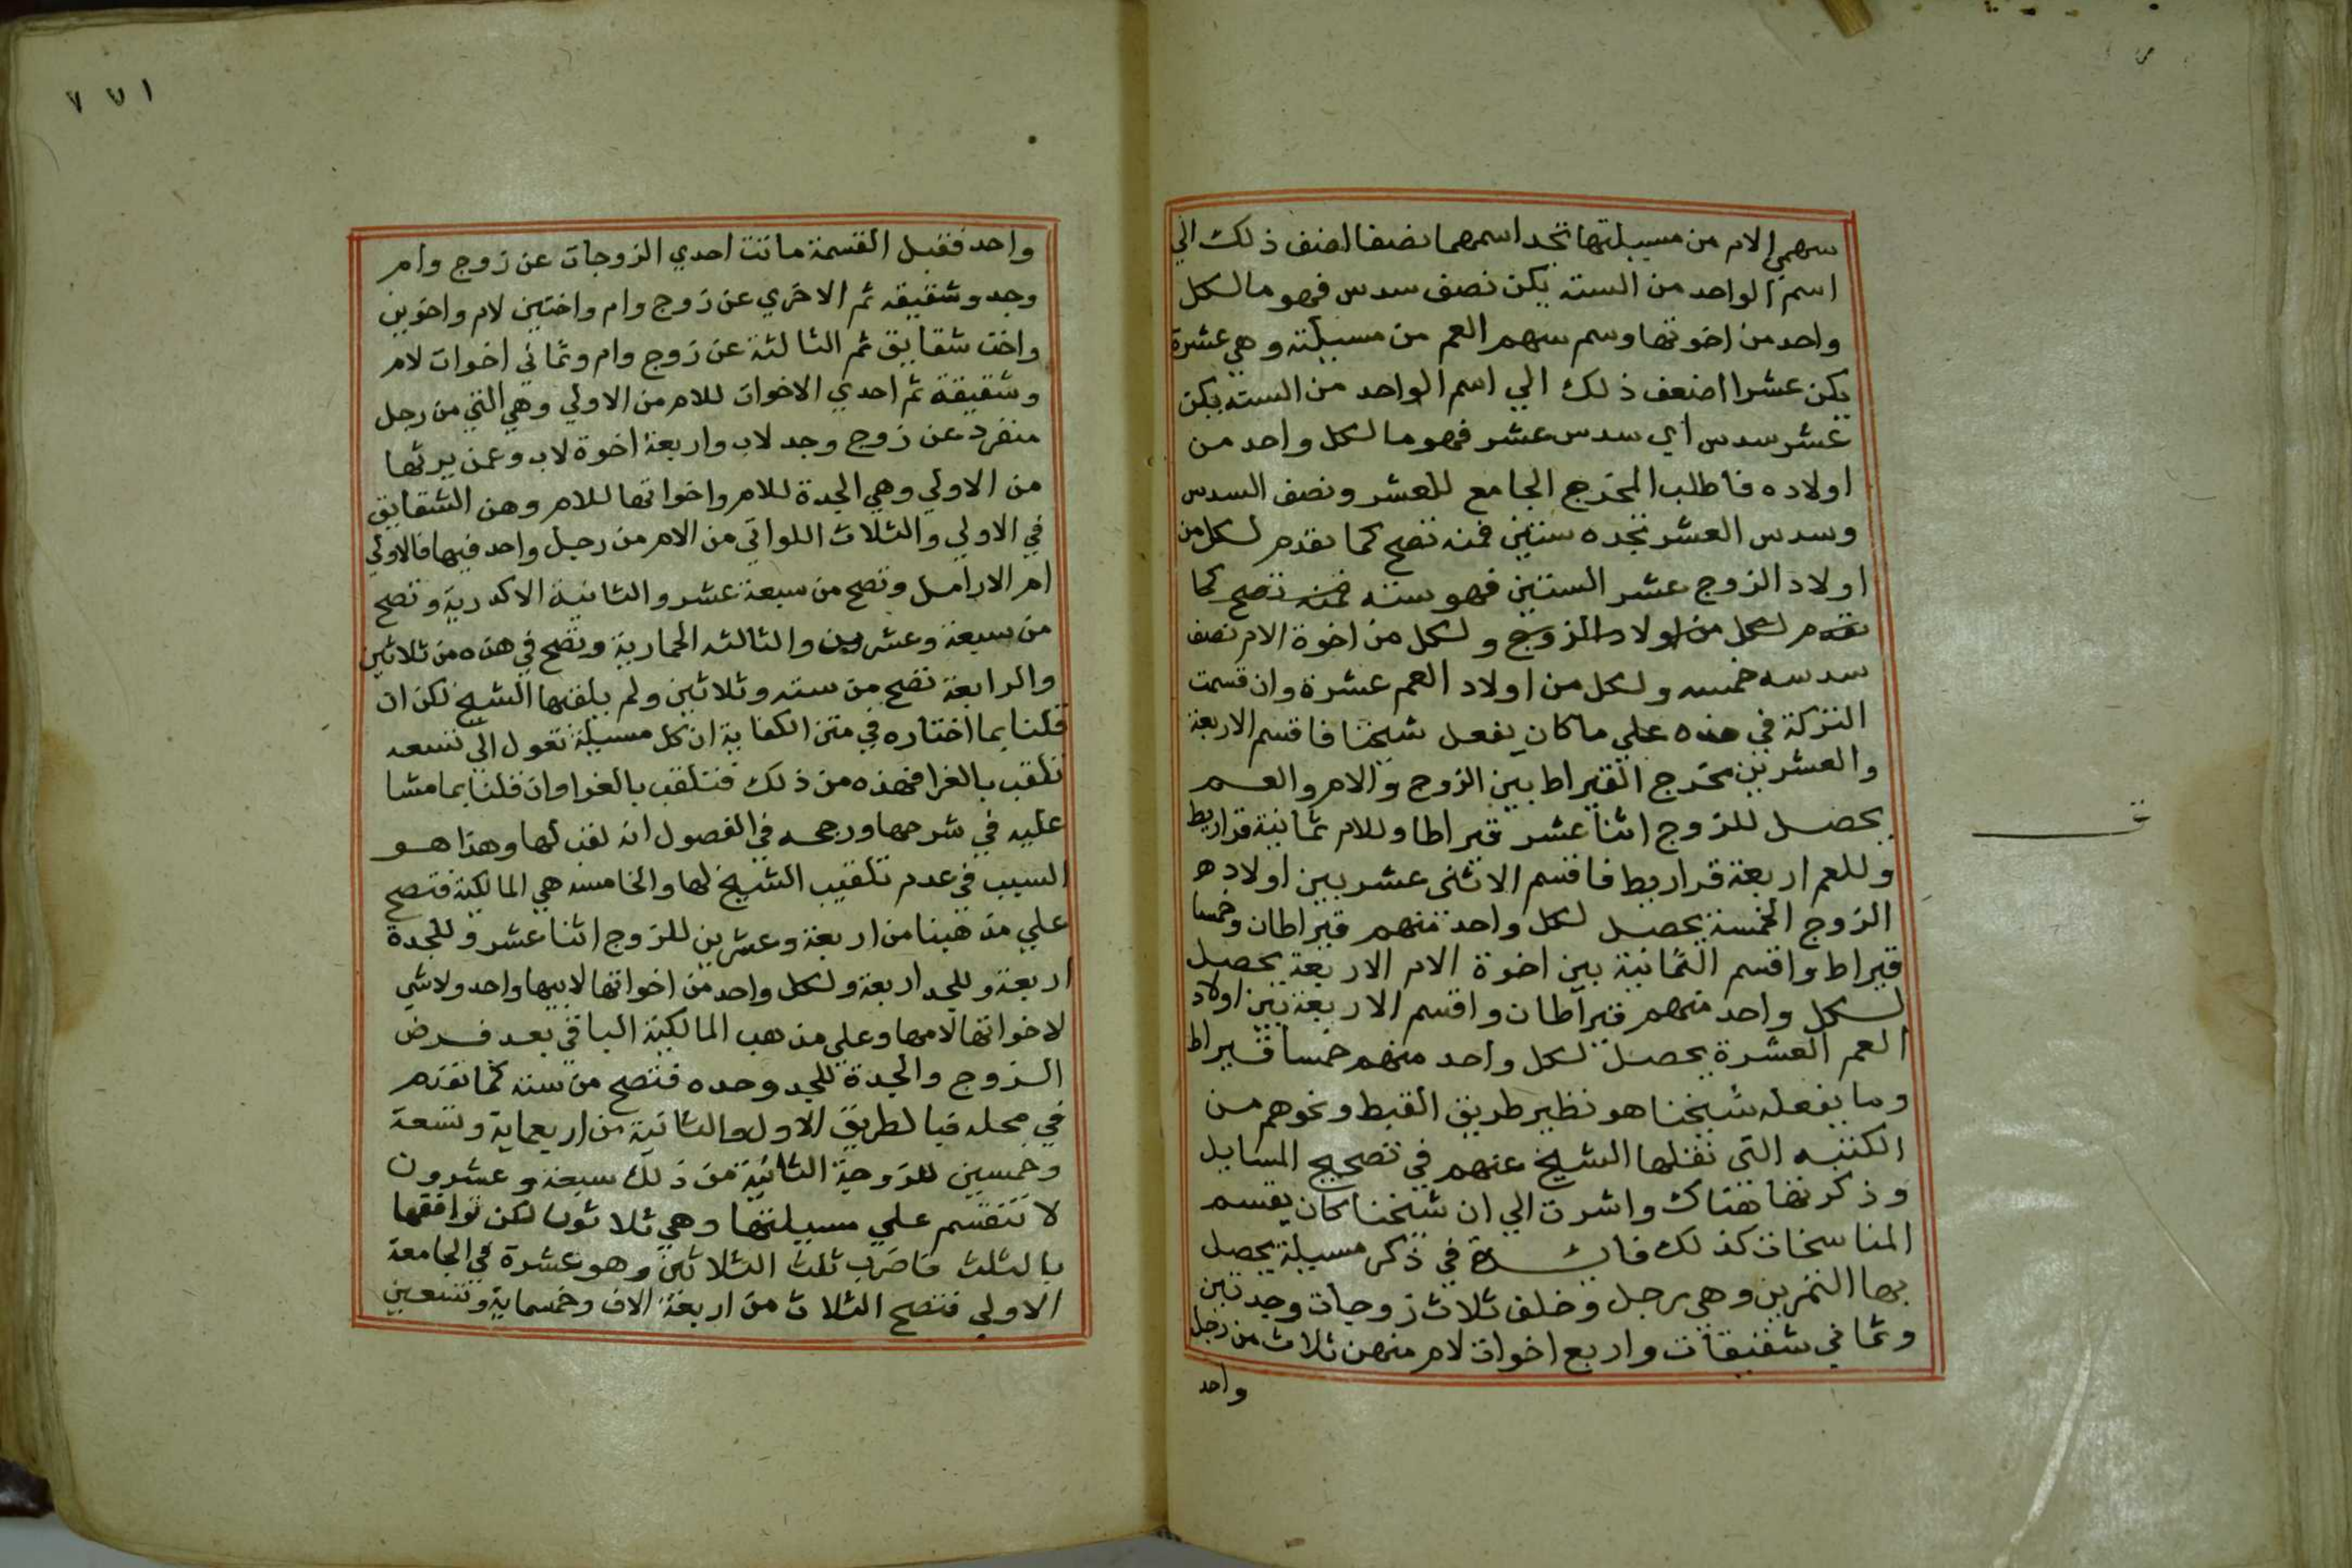 سهمي الام من مسيلتها تجد اسمهما نصفا اضف ذلك الي
اسم الواحد من الستة يكن نصف سدس فهو ما لكل
واحد من اخوتها وسم سهم العم من مسيلته وهي عشرة
يكن عشرا اضعف ذلك الي اسم الواحد من الستة يكن
عشر سدس اي سدس عشر فهو ما لكل واحد من
اولاده فاطلب المخرج الجامع للعشر ونصف السدس
وسدس العشر تجده ستين فمنه تصح كما تقدم لكل من
اولاد الزوج عشر الستين فهو ستة فمنه تصح كما
تقدم لكل من اولاد الزوج ولكل من اخوة الام نصف
سدسه خمسه ولكل من اولاد العم عشرة وان قسمت
التركة في هذه علي ما كان يفعل شيخنا فاقسم الاربعة
والعشرين مخرج القيراط بين الزوج والام والعم
يحصل للزوج اثنا عشر قيراطا وللام ثمانية قراريط
وللعم اربعة قراريط فاقسم الاثنى عشر بين اولاده
الزوج الخمسة يحصل لكل واحد منهم قيراطان وخمسا
قيراط واقسم الثمانية بين اخوة الام الاربعة يحصل
لكل واحد منهم قيراطان واقسم الاربعة بين اولاد
العم العشرة يحصل لكل واحد منهم خمسا قيراط
وما يفعله شيخنا هو نظير طريق القبط ونحوهم من
الكتبه التي نقلها الشيخ عنهم في تصحيح المسايل
وذكرتها هناك واشرت الي ان شيخنا كان يقسم
المناسخات كذلك فايدة في ذكر مسيلة يحصل
بها التمرين وهي رجل وخلف ثلاث زوجات وجدتين
وثماني شقيقات واربع اخوات لام منهن ثلاث من رجل
واحد
١٧٧
واحد فقبل القسمة ماتت احدي الزوجات عن زوج وام
وجد وشقيقه ثم الاخري عن زوج وام واختين لام واخوين
واخت شقايق ثم الثالثة عن زوج وام وثماني اخوات لام
وشقيقة ثم احدي الاخوات للام من الاولي وهي التي من رجل
منفرد عن زوج وجد لاب واربعة اخوة لاب وعمن يرثها
من الاولي وهي الجدة للام واخواتها للام وهن الشقايق
في الاولي والثلاث اللواتي من الام من رجل واحد فيها فالاولي
ام الارامل وتصح من سبعة عشر والثانية الاكدرية وتصح
من سبعة وعشرين والثالثه الحمارية وتصح في هذه من ثلاثين
والرابعة تصح من ستة وثلاثين ولم يلقبها الشيخ لكن ان
قلنا بما اختاره في متن الكفاية ان كل مسيلة تعول الي تسعه
تلقب بالغرا فهذه من ذلك فتلقب بالغرا وان قلنا بما مشا
عليه في شرحها ورجحه في الفصول انه لقب لها وهذا هو
السبب في عدم تلقيب الشيخ لها والخامسة هي المالكية فتصح
علي مذهبنا من اربعة وعشرين للزوج اثنا عشر وللجدة
اربعة وللجد اربعة ولكل واحد من اخواتها لابيها واحد ولا شي
لاخواتها لامها وعلي مذهب المالكية الباقي بعد فرض
الزوج والجدة للجد وحده فتصح من ستة كما تقدم
في محله فبالطريق الاول والثانية من اربعماية وتسعة
وخمسين للزوجة الثانية من ذلك سبعة وعشرون
لا تنقسم علي مسيلتها وهي ثلاثون لكن توافقها
بالثلث فاضرب ثلث الثلاثين وهو عشرة في الجامعة
الاولي فتصح الثلاث من اربعة الاف وخمسماية وتسعين